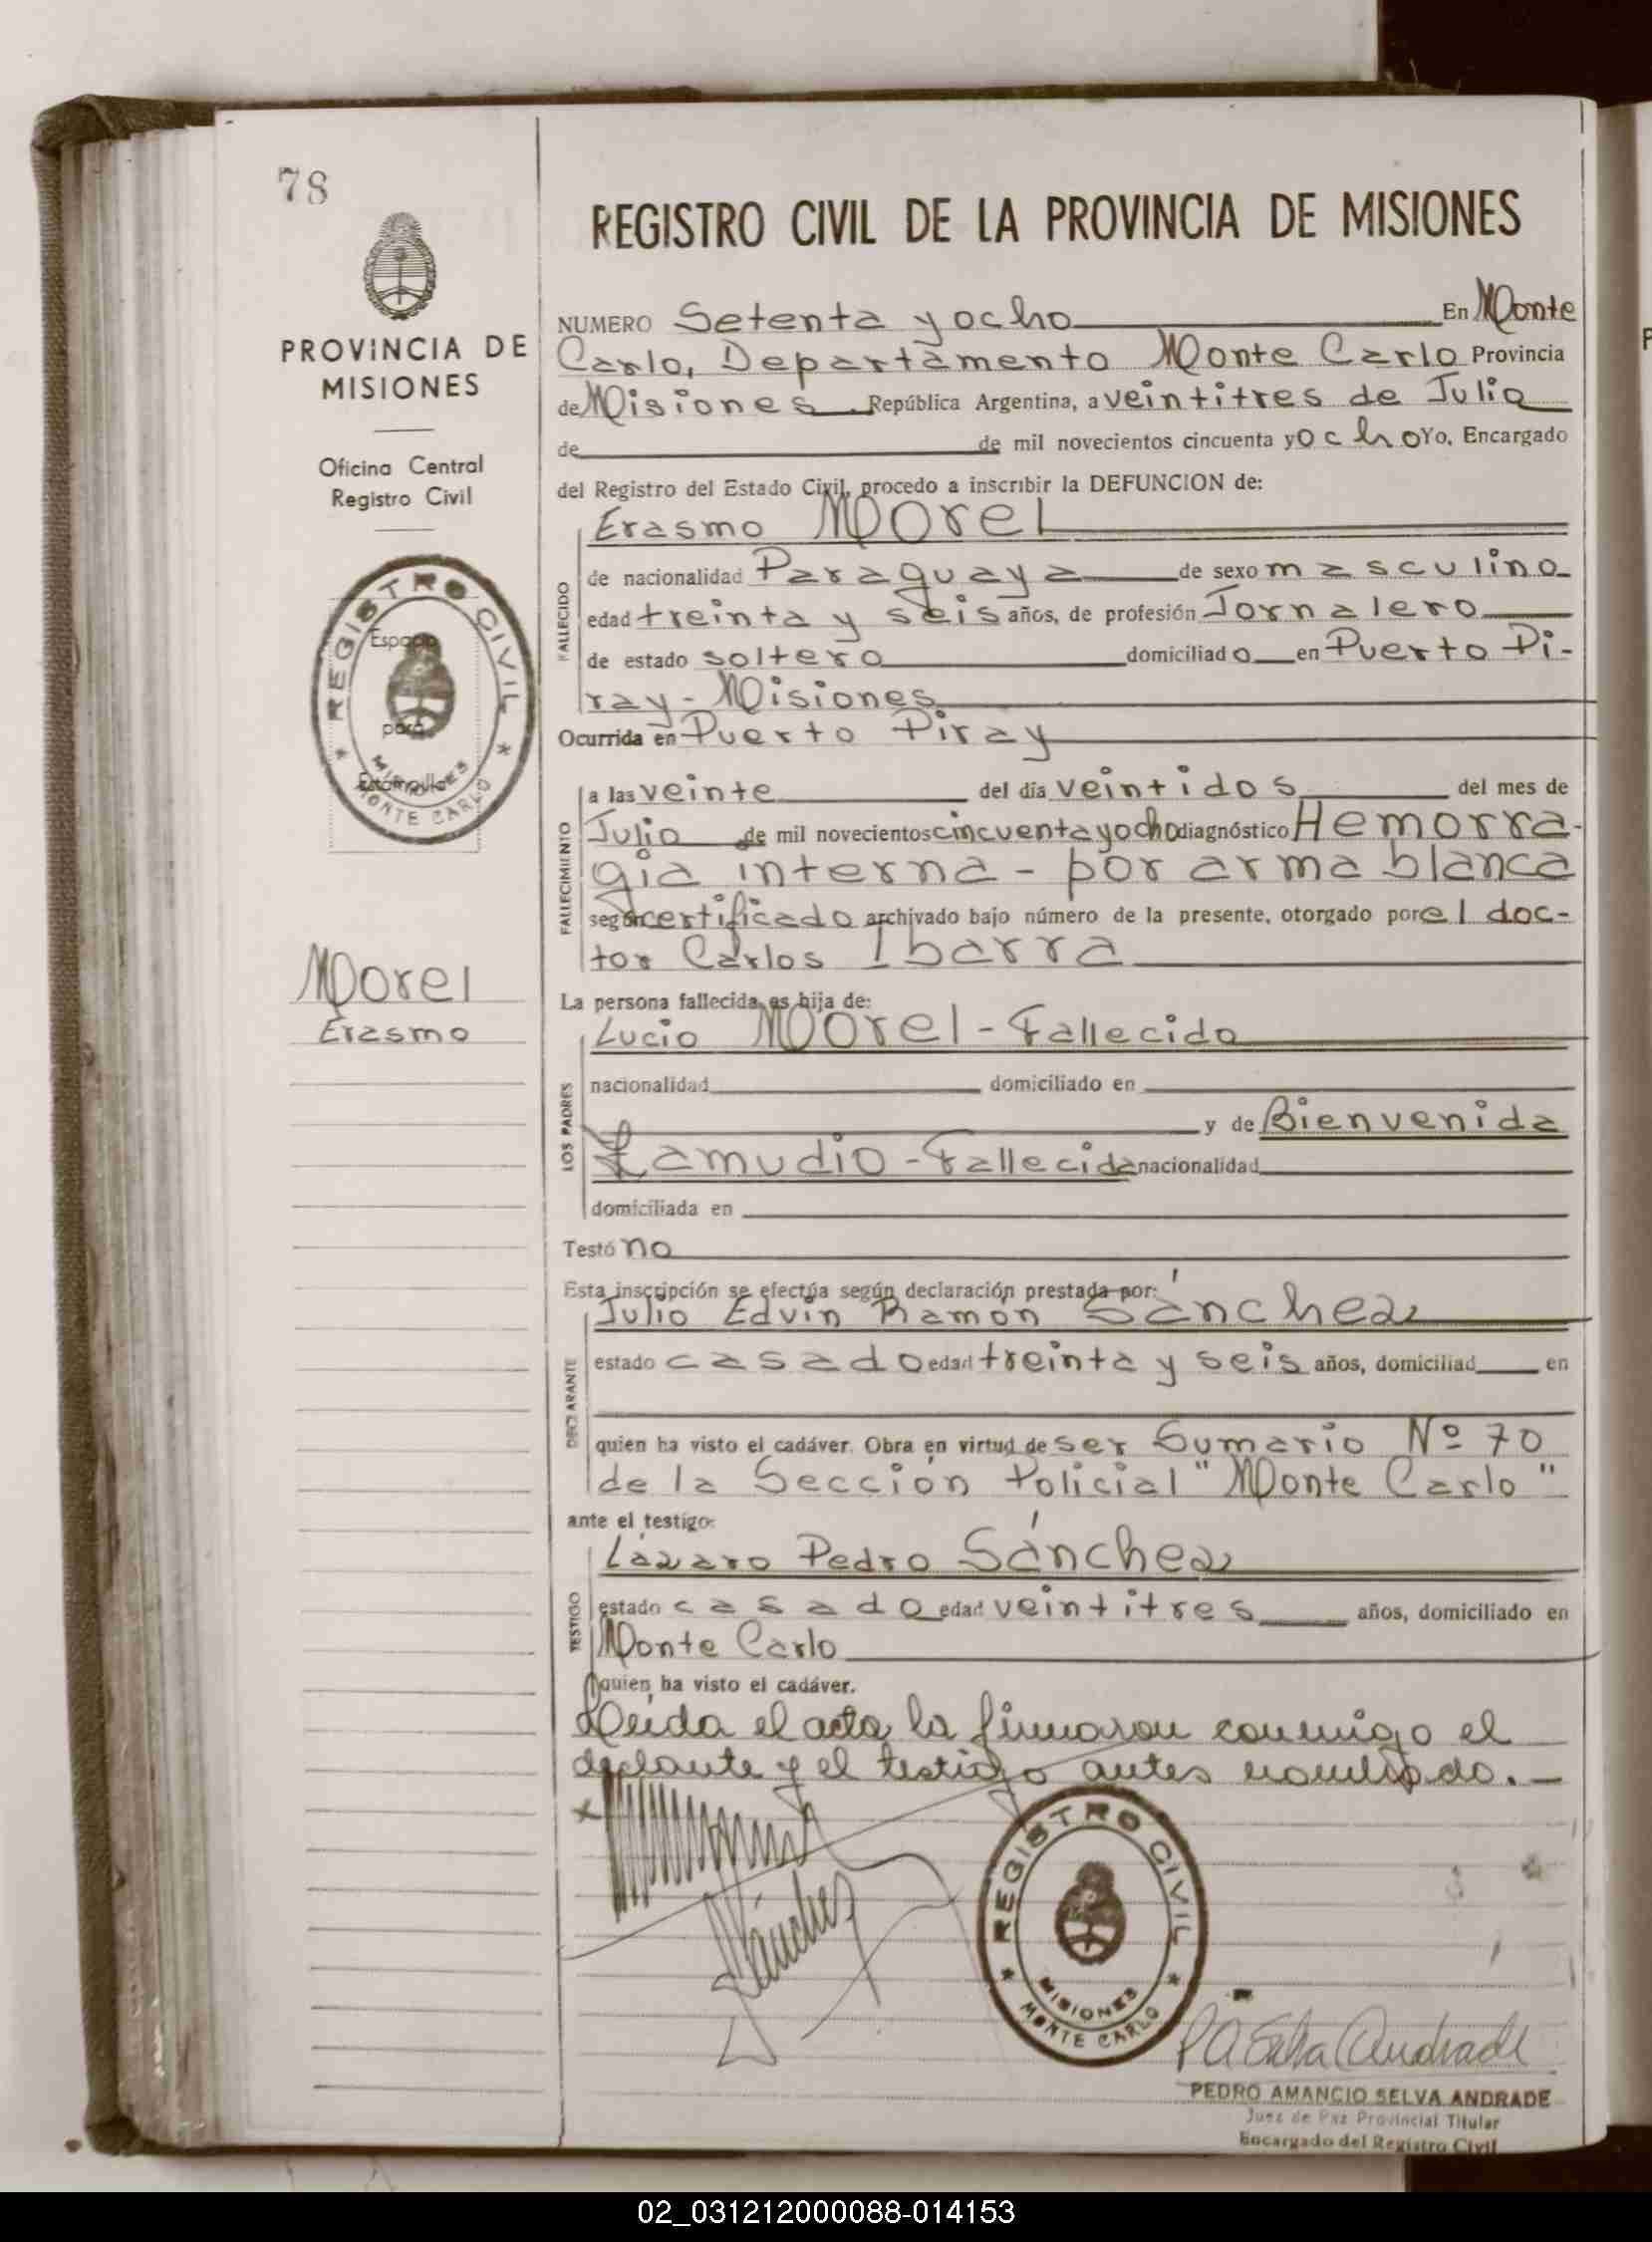 78
PROVINCIA DE
MISIONES
Oficina Central
Registro Civil
REGISTRO CIVIL
Espacio
para
Estampilla
MISIONES
MONTE CARLO
Morel
Erasmo
REGISTRO CIVIL DE LA PROVINCIA DE MISIONES
NUMERO Setenta y ocho En Monte
Carlo, Departamento Monte Carlo Provincia
de Misiones República Argentina, a veintitres de Julio
de de mil novecientos cincuenta y ocho Yo, Encargado
del Registro del Estado Civil, procedo a inscribir la DEFUNCION de:
Erasmo Morel
FALLECIDO
de nacionalidad Paraguaya de sexo masculino
edad treinta y seis años, de profesión Jornalero
de estado soltero domiciliado en Puerto Pi-
ray - Misiones
Ocurrida en Puerto Piray
FALLECIMIENTO
a las veinte del día veintidos del mes de
Julio de mil novecientos cincuenta y ocho diagnóstico Hemorra-
gia interna - por arma blanca
según certificado archivado bajo número de la presente, otorgado por el doc-
tor Carlos Ibarra
La persona fallecida es hija de:
LOS PADRES
Lucio Morel - Fallecido
nacionalidad domiciliado en
y de Bienvenida
Zamudio - Fallecida nacionalidad
domiciliada en
Testó no
Esta inscripción se efectúa según declaración prestada por:
DECLARANTE
Julio Edvin Ramón Sánchez
estado casado edad treinta y seis años, domiciliad en
quien ha visto el cadáver. Obra en virtud de ser Sumario Nº 70
de la Sección Policial "Monte Carlo"
ante el testigo:
TESTIGO
Lázaro Pedro Sánchez
estado casado edad veintitres años, domiciliado en
Monte Carlo
quien ha visto el cadáver.
Leida el acta, la firmaron conmigo el
declante y el testigo antes nombrado.-
Sánchez
REGISTRO CIVIL
MISIONES
MONTE CARLO
P A Selva Andrade
PEDRO AMANCIO SELVA ANDRADE
Juez de Paz Provincial Titular
Encargado del Registro Civil
02_031212000088-014153